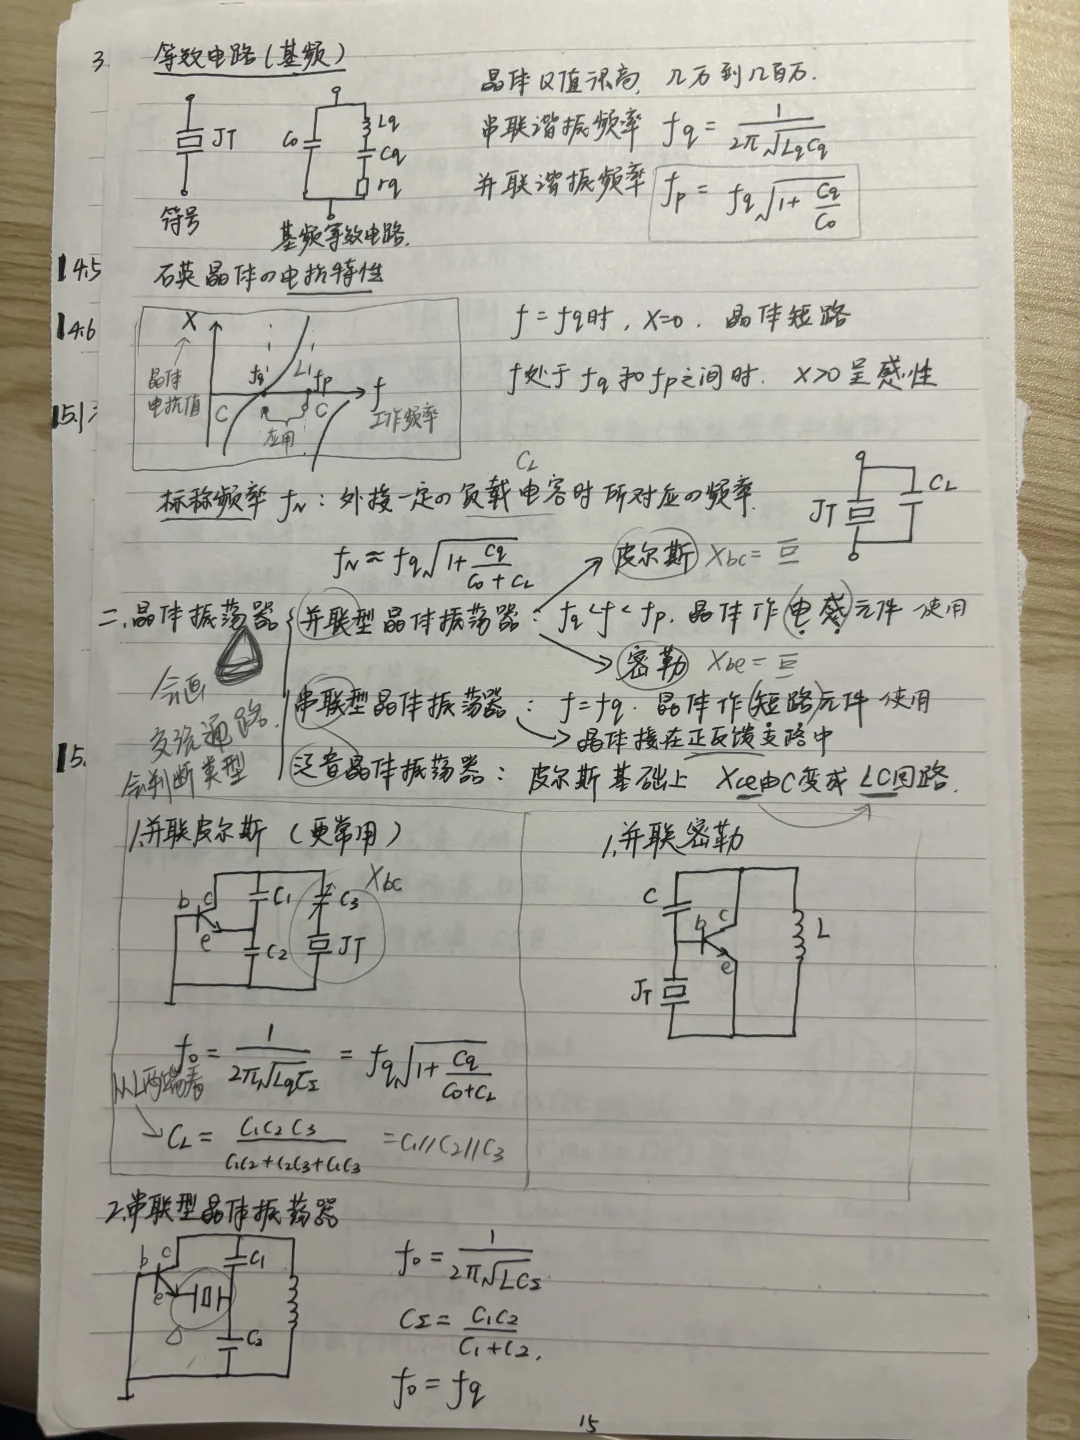 3. 等效电路(基频)
晶体Q值很高, 几万到几百万.
JT
C₀ Lq Cq rq
符号
基频等效电路.
串联谐振频率 fq = 1/(2π√(LqCq))
并联谐振频率 fp = fq√(1+Cq/C₀)
14.5
石英晶体の电抗特性
14.6
X
晶体电抗值
fq L fp f
C C
应用
工作频率
f=fq时, X=0. 晶体短路
f处于fq和fp之间时. X>0 呈感性
15.1
标称频率 fN: 外接一定の负载电容时所对应の频率.
CL
JT CL
fN ≈ fq√(1+Cq/(C₀+CL))
皮尔斯 Xbc=
二.晶体振荡器
并联型晶体振荡器: fq<f<fp. 晶体作电感元件使用
密勒 Xbe=
会画交流通路.
会判断类型
串联型晶体振荡器: f=fq. 晶体作短路元件使用
晶体接在正反馈支路中
15.
泛音晶体振荡器: 皮尔斯基础上 Xce由C变成LC回路.
1.并联皮尔斯 (更常用)
b c e C₁ C₂ C₃ JT
Xbc
f₀ = 1/(2π√(LqCΣ)) = fq√(1+Cq/(C₀+CL))
从L两端看
CL = C₁C₂C₃/(C₁C₂+C₂C₃+C₁C₃) = C₁//C₂//C₃
1.并联密勒
C b c e L JT
2.串联型晶体振荡器
b c e C₁ C₂
f₀ = 1/(2π√(LCΣ))
CΣ = C₁C₂/(C₁+C₂).
f₀ = fq
15